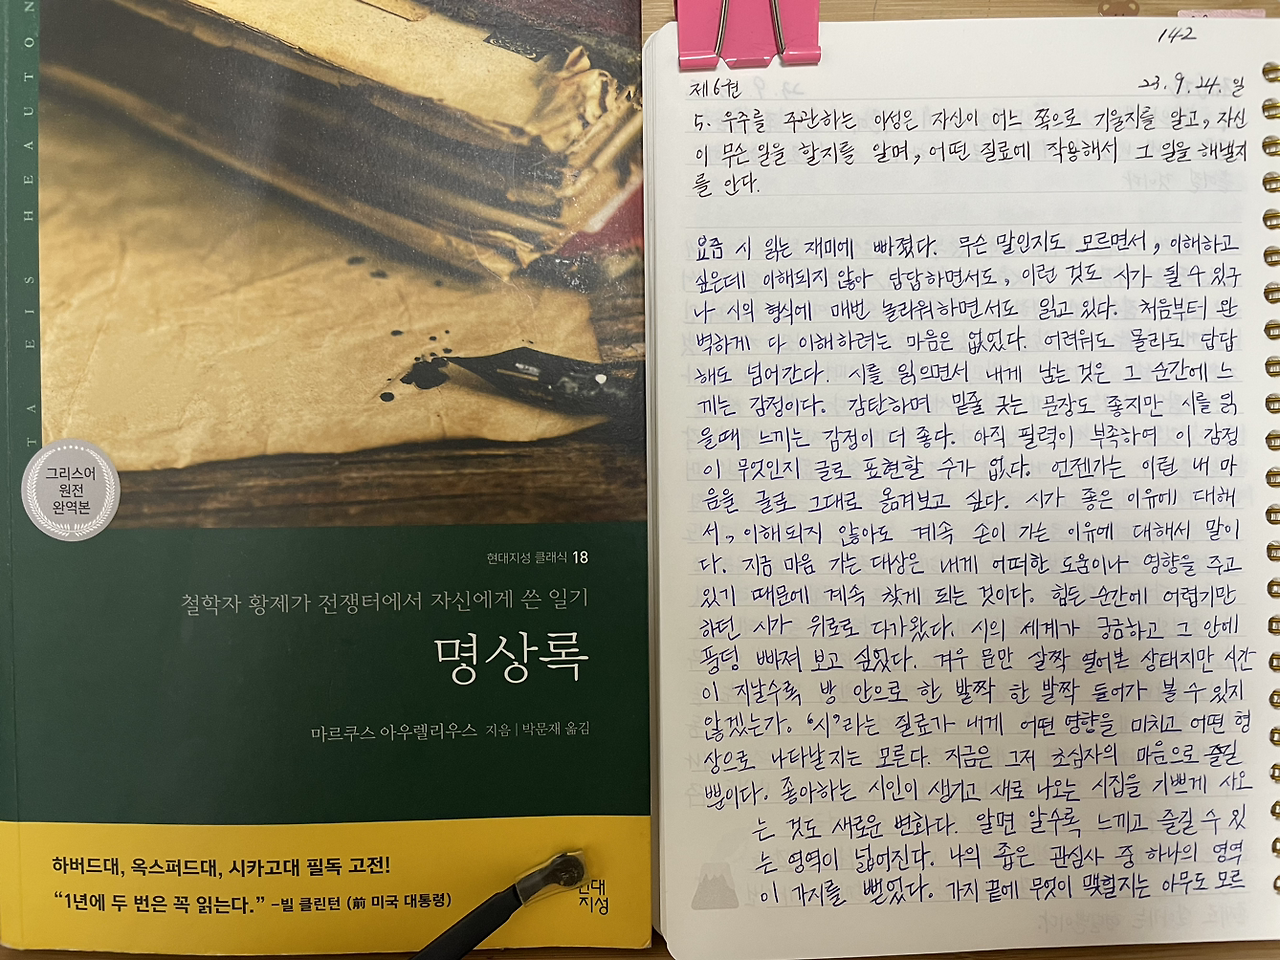 TA EIS HEAUTON
그리스어
원전
완역본
현대지성 클래식 18
철학자 황제가 전쟁터에서 자신에게 쓴 일기
명상록
마르쿠스 아우렐리우스 지음 | 박문재 옮김
하버드대, 옥스퍼드대, 시카고대 필독 고전!
“1년에 두 번은 꼭 읽는다.” –빌 클린턴 (前 미국 대통령)
현대
지성
142
제6권 23. 9. 24. 일
5. 우주를 주관하는 이성은 자신이 어느 쪽으로 기울지를 알고, 자신
이 무슨 일을 할지를 알며, 어떤 질료에 작용해서 그 일을 해낼지
를 안다.
요즘 시 읽는 재미에 빠졌다. 무슨 말인지도 모르면서, 이해하고
싶은데 이해되지 않아 답답하면서도, 이런 것도 시가 될 수 있구
나 시의 형식에 매번 놀라워하면서도 읽고 있다. 처음부터 완
벽하게 다 이해하려는 마음은 없었다. 어려워도 몰라도 답답
해도 넘어간다. 시를 읽으면서 내게 남는 것은 그 순간에 느
끼는 감정이다. 감탄하며 밑줄 긋는 문장도 좋지만 시를 읽
을때 느끼는 감정이 더 좋다. 아직 필력이 부족하여 이 감정
이 무엇인지 글로 표현할 수가 없다. 언젠가는 이런 내 마
음을 글로 그대로 옮겨보고 싶다. 시가 좋은 이유에 대해
서, 이해되지 않아도 계속 손이 가는 이유에 대해서 말이
다. 지금 마음 가는 대상은 내게 어떠한 도움이나 영향을 주고
있기 때문에 계속 찾게 되는 것이다. 힘든 순간에 어렵기만
하던 시가 위로로 다가왔다. 시의 세계가 궁금하고 그 안에
풍덩 빠져 보고 싶었다. 겨우 문만 살짝 열어본 상태지만 시간
이 지날수록 방 안으로 한 발짝 한 발짝 들어가 볼 수 있지
않겠는가. ‘시’라는 질료가 내게 어떤 영향을 미치고 어떤 형
상으로 나타날지는 모른다. 지금은 그저 초심자의 마음으로 즐길
뿐이다. 좋아하는 시인이 생기고 새로 나오는 시집을 기쁘게 사오
는 것도 새로운 변화다. 알면 알수록 느끼고 즐길 수 있
는 영역이 넓어진다. 나의 좁은 관심사 중 하나의 영역
이 가지를 뻗었다. 가지 끝에 무엇이 맺힐지는 아무도 모르